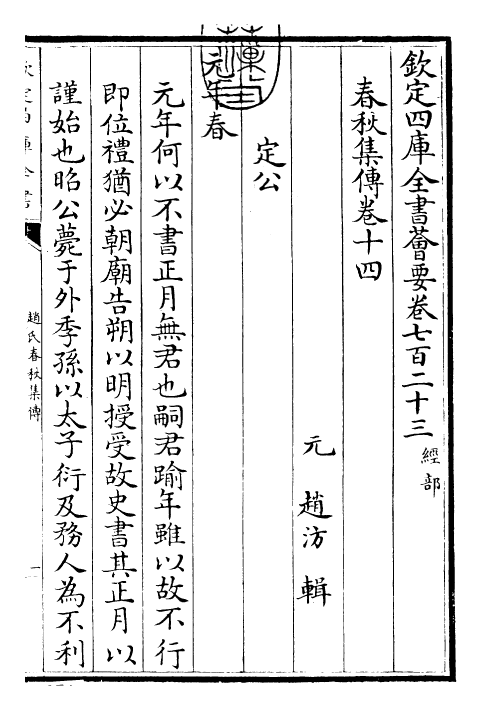 欽定四庫全書薈要卷七百二十三 經部
春秋集傳卷十四
元 趙汸 輯
定公
元年春
元年何以不書正月無君也嗣君踰年雖以故不行
即位禮猶必朝廟告朔以明授受故史書其正月以
謹始也昭公薨于外季孫以太子衍及務人為不利
欽定四庫全書
趙氏春秋集傳
一